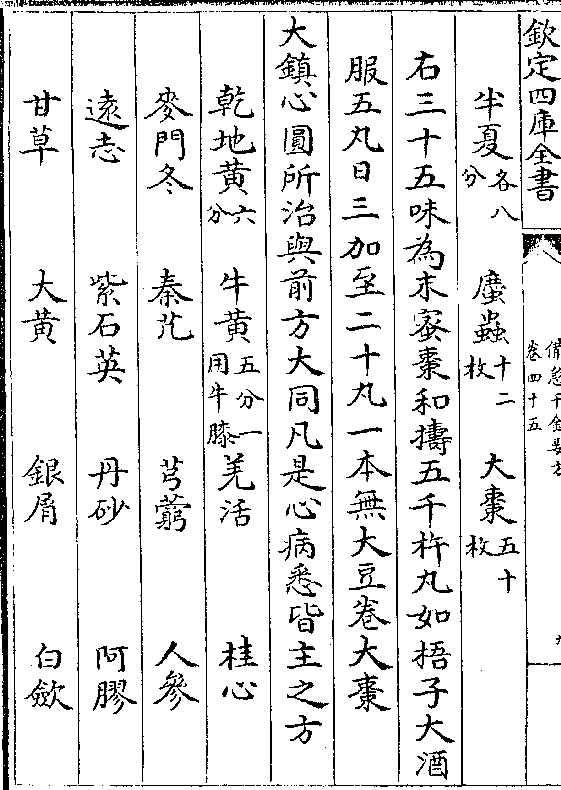 欽定四庫全書
備急千金要方
卷四十五
半夏各八分 䗪蟲十二枚 大棗五十枚
右三十五味為末蜜棗和擣五千杵丸如梧子大酒
服五丸日三加至二十丸一本無大豆卷大棗
大鎮心圓所治與前方大同凡是心病悉皆主之方
乾地黄六分 牛黄五分一用牛膝 羌活 桂心
麥門冬 秦艽 芎藭 人參
遠志 紫石英 丹砂 阿膠
甘草 大黄 銀屑 白歛